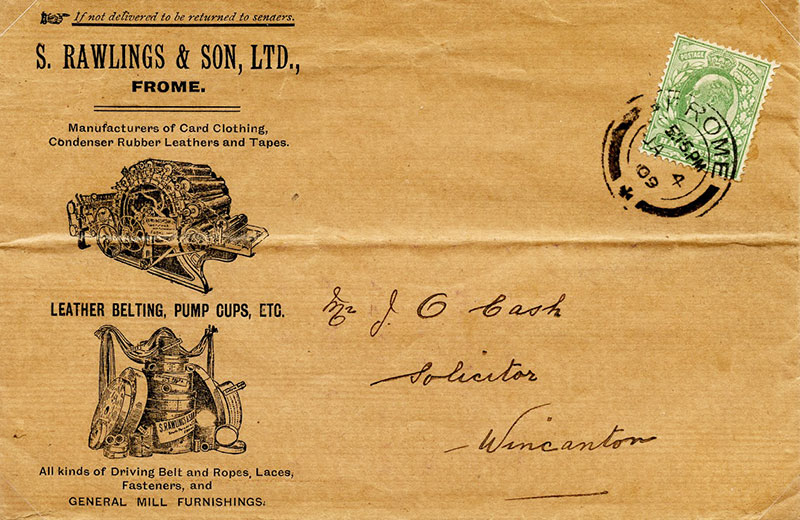 If not delivered to be returned to senders.
S. RAWLINGS & SON, LTD.,
FROME.
Manufacturers of Card Clothing,
Condenser Rubber Leathers and Tapes.
LEATHER BELTING, PUMP CUPS, ETC.
S. RAWLINGS &
All kinds of Driving Belt and Ropes, Laces,
Fasteners, and
GENERAL MILL FURNISHINGS.
POSTAGE
FROME
5.15PM
4
09
Mr J. O Cash
Solicitor
Wincanton